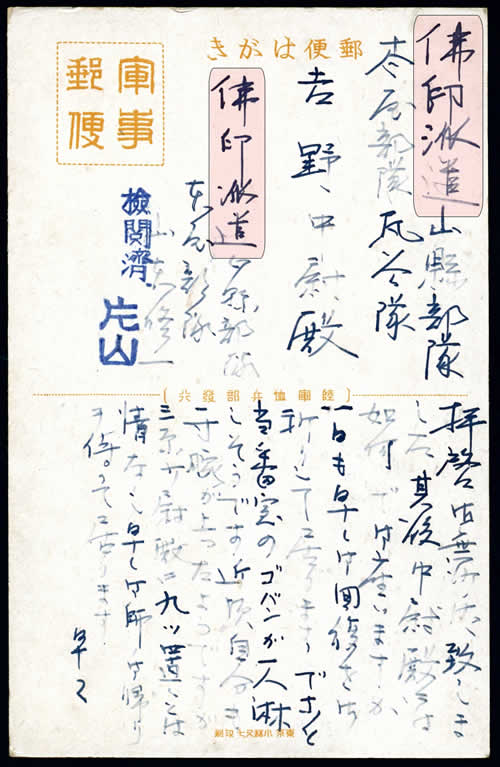 郵便はがき
軍事
郵便
佛印派遣山縣部隊
部隊瓦谷隊
吉野中尉殿
佛印派遣山縣部隊
部隊
修一
檢閲濟
片山
陸軍恤兵部發行
拝啓御無沙汰致しま
した其後中尉殿には
如何で御座いますか
一日も早く御回復をお
祈りして居ります でないと
当番室のゴバンが一人淋
しそうです 近頃自分も
一寸腕が上ったようですが
尉殿に九ツ置では
情なし早く御師の御帰り
を待って居ります
早々
東京 小林又七 印刷